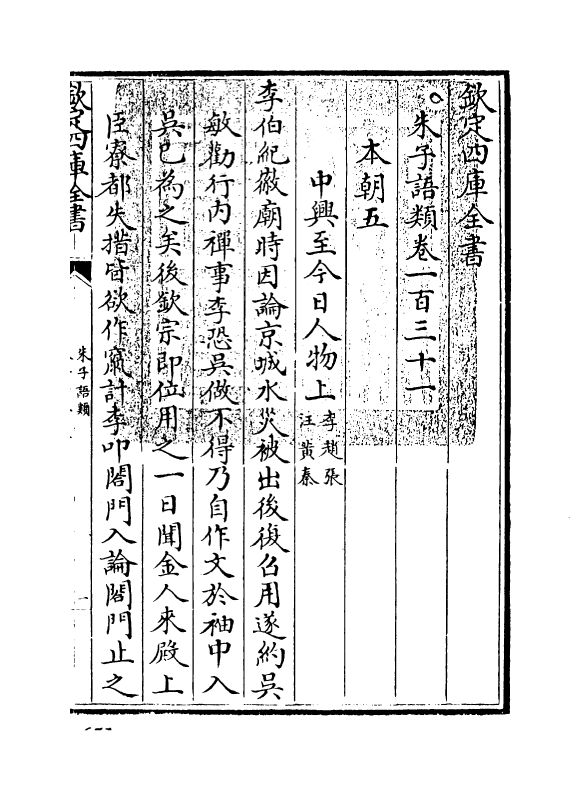 欽定四庫全書
朱子語類卷一百三十一
本朝五
中興至今日人物上
李趙張
汪黃秦
李伯紀徽廟時因論京城水災被出後復召用遂約吳
敏勸行內禪事李恐吳做不得乃自作文於袖中入
吳已為之矣後欽宗即位用之一日聞金人來殿上
臣寮都失措皆欲作竄計李叩閤門入論閤門止之
欽定四庫全書
朱子語類
一